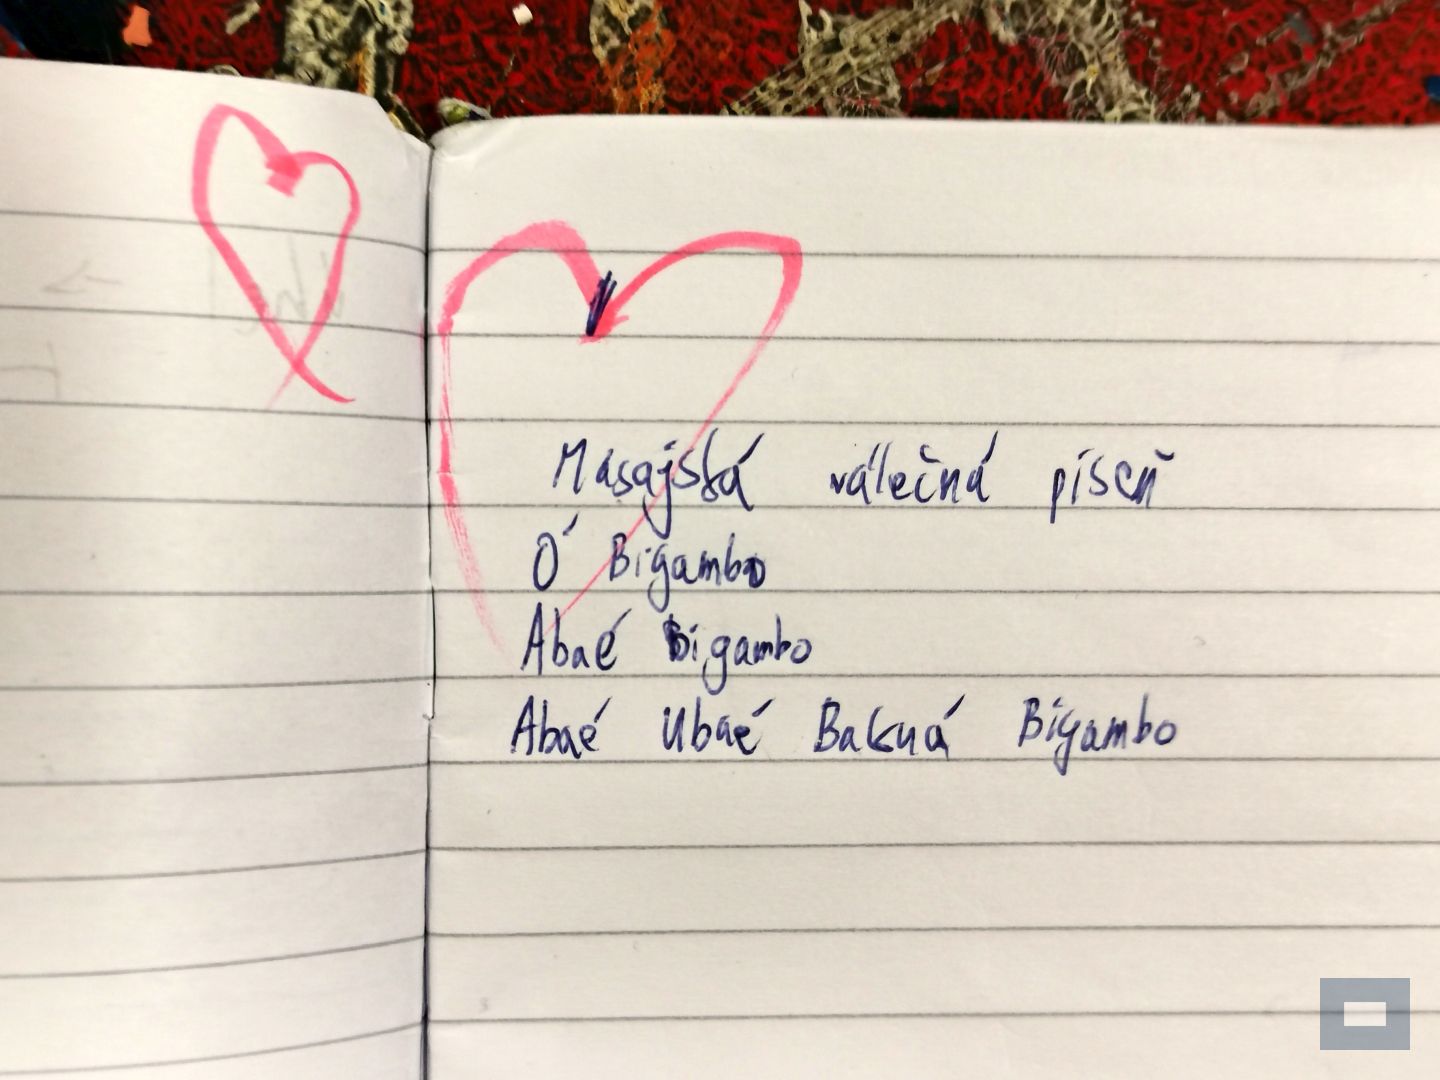 Masajská válečná píseň
Ó Bigambo
Abaé Bigambo
Abaé Ubaé Bakuá Bigambo